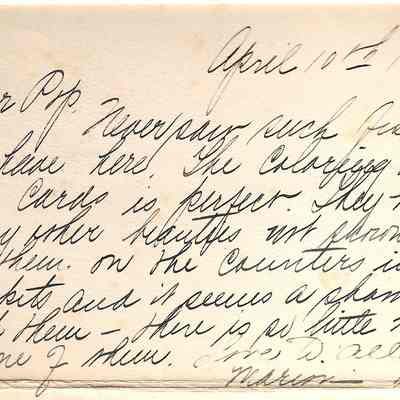 April 10th 1
r Pop. Never saw such
have here. The coloring
Cards is perfect. They
y other beauties not shown
them. on the counters i
kets and it seems a sham
d them - there is so little
ne of them. Love
Marion